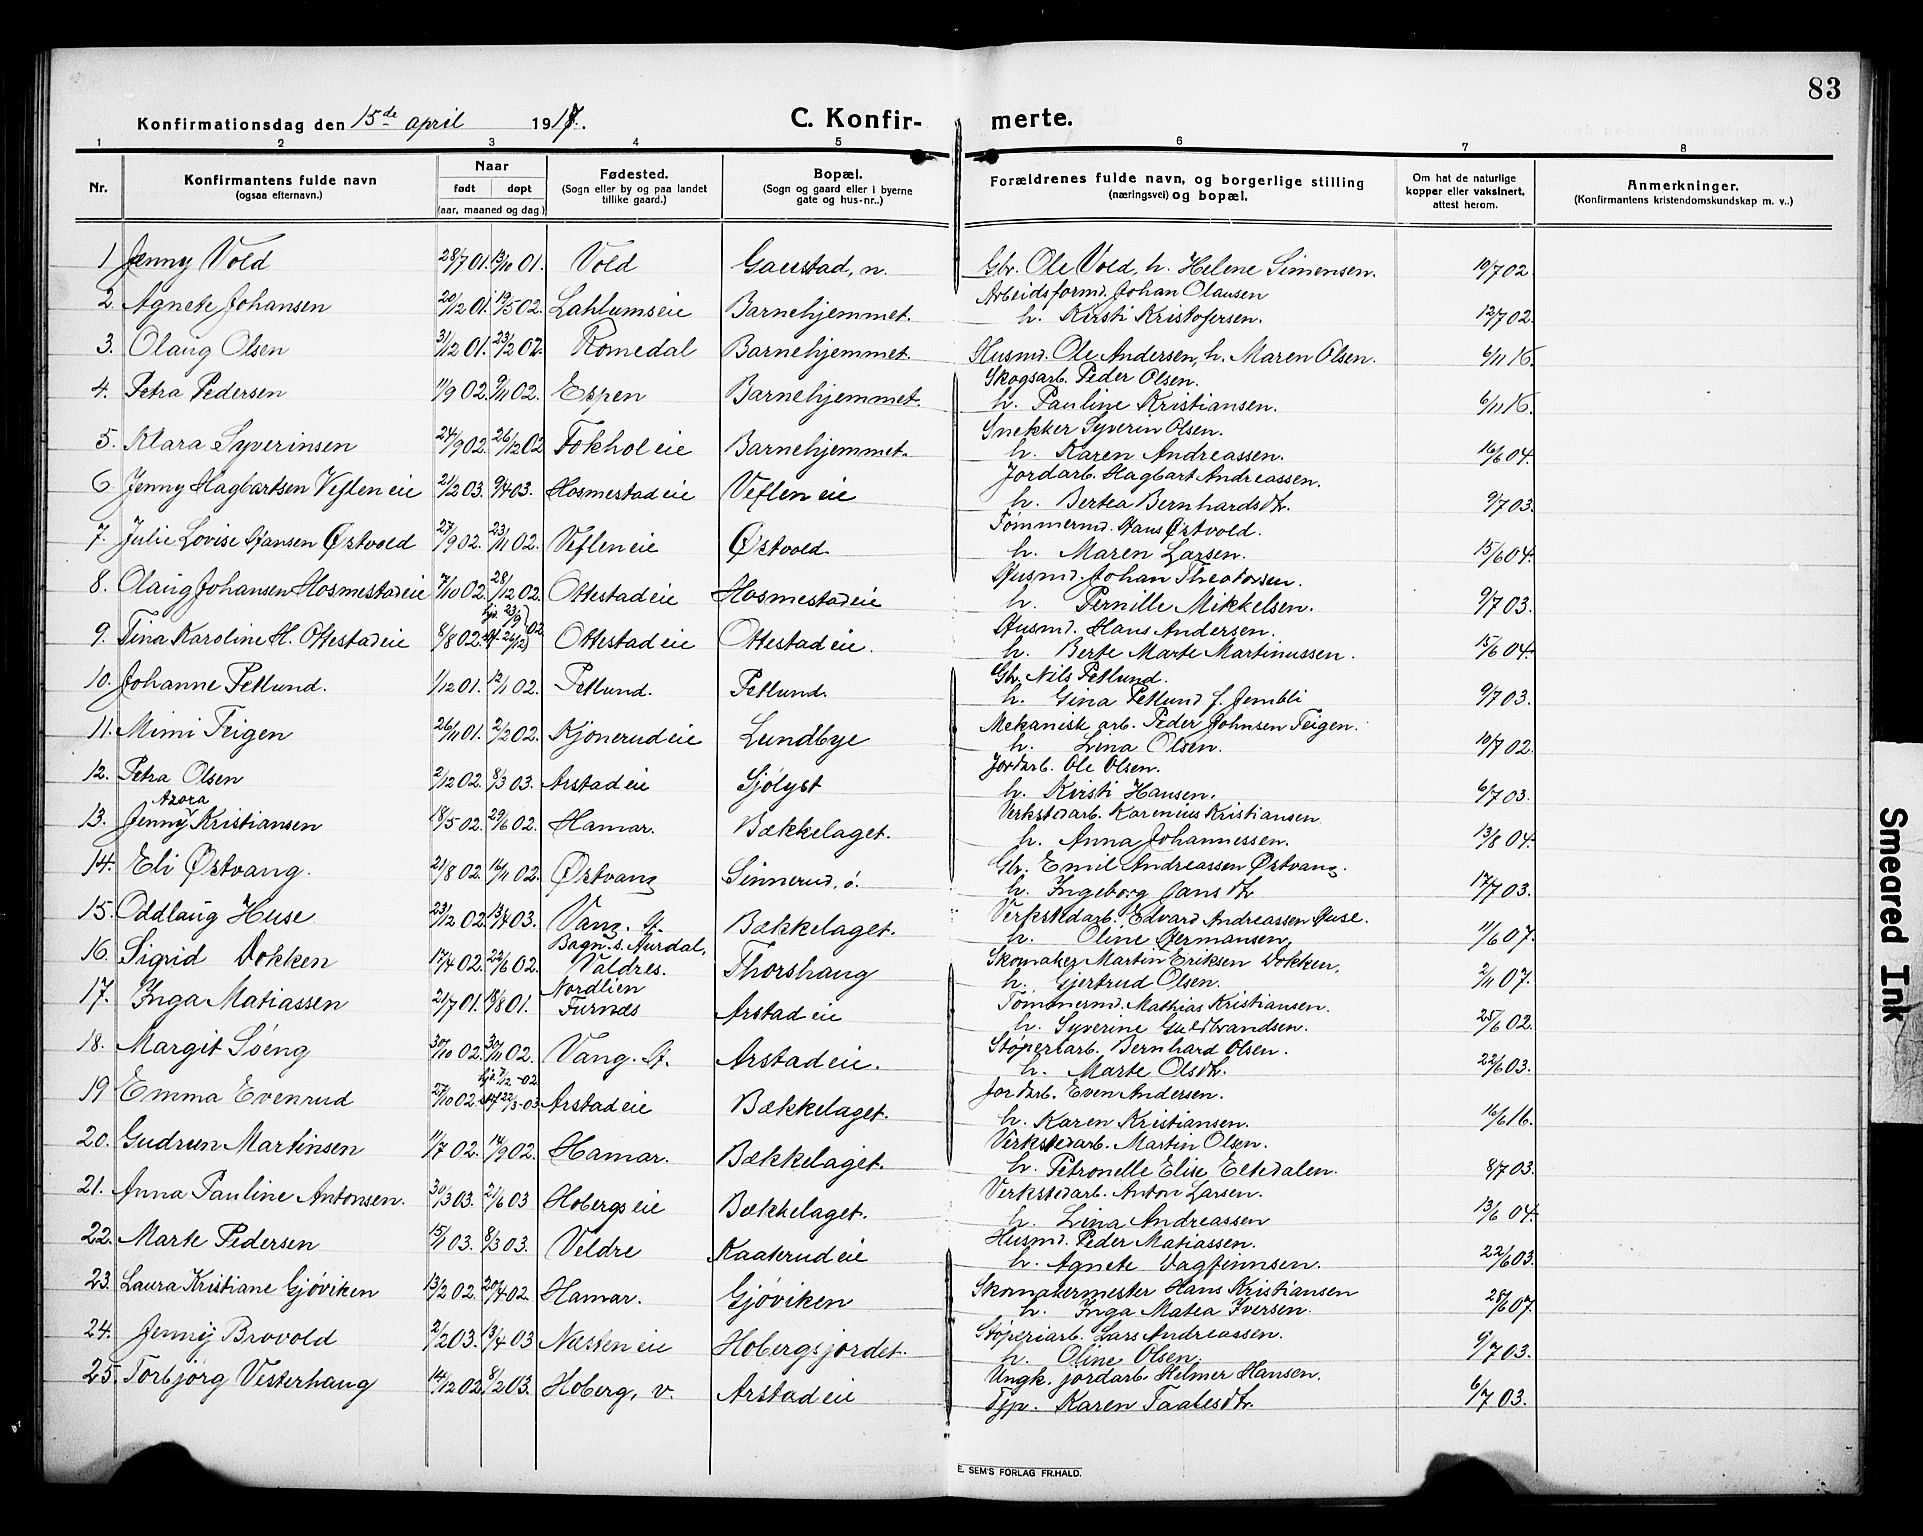 83
Konfirmationsdag den 15de april 1917.
C. Konfir- merte.
1 2 3 4 5 6 7 8
Nr. Konfirmantens fulde navn (ogsaa efternavn.) Naar født døpt (aar, maaned og dag) Fødested. (Sogn eller by og paa landet tillike gaard.) Bopæl. (Sogn og gaard eller i byerne gate og hus-nr..) Forældrenes fulde navn, og borgerlige stilling (næringsvei) og bopæl. Om hat de naturlige kopper eller vaksinert, attest herom. Anmerkninger. (Konfirmantens kristendomskundskap m. v..)
1 Jenny Vold 28/7 01. 13/10 01. Vold Gaustad, n. Gbr. Ole Vold, h. Helene Simensen. 10/7 02.
2. Agnete Johansen 20/12 01. 19/5 02. Lahlumseie Barnehjemmet. Arbeidsformd. Johan Olausen
h. Kirsti Kristofersen. 12/7 02.
3. Olaug Olsen 31/12 01. 23/2 02. Romedal Barnehjemmet. Husmd. Ole Andersen, h. Maren Olsen. 6/11 16.
4. Petra Pedersen 11/9 02. 9/11 02. Espen Barnehjemmet. Skogsarb. Peder Olsen.
h. Pauline Kristiansen. 6/11 16.
5. Klara Syverinsen 24/9 02. 26/12 02 Fokhol eie Barnehjemmet. Snekker Syverin Olsen.
h. Karen Andreassen. 16/6 04.
6. Jenny Hagbartsen Veflen eie 21/2 03. 9/4 03. Hosmestad eie Veflen eie Jordarb. Hagbart Andreassen.
h. Bertea Bernhardsdtr. 9/7 03.
7. Julie Lovise Hansen Østvold 27/9 02. 23/11 02. Veflen eie Østvold Tømmermd. Hans Østvold.
h. Maren Larsen. 15/6 04.
8. Olaug Johansen Hosmestadeie 7/10 02. 28/12 02. Ottestad eie Hosmestadeie Husmd. Johan Theodorsen.
h. Pernille Mikkelsen. 9/7 03.
9. Tina Karoline H. Ottestadeie 8/8 02. hjd. 23/9 stf. 26/12 02 Ottestad eie Ottestad eie. Husmd. Hans Andersen.
h. Berte Marte Martinussen. 15/6 04.
10. Johanne Petlund. 1/12 01. 12/1 02. Petlund. Petlund. Gbr. Nils Petlund.
h. Gina Petlund f. Jembli 9/7 03.
11. Mimi Teigen 26/11 01. 2/2 02. Kjønerud eie Lundbye Mekanisk arb. Peder Johnsen Teigen.
h. Lina Olsen. 10/7 02.
12. Petra Olsen 2/12 02. 8/3 03. Arstad eie Sjølyst Jordarb. Ole Olsen.
h. Kirsti Hansen. 6/7 03.
13. Jenny Azora Kristiansen 18/5 02. 29/6 02. Hamar. Bækkelaget. Verkstedarb. Karenius Kristiansen
h. Anna Johannessen. 13/8 04.
14. Eli Østvang. 21/8 02. 16/11 02. Østvang Sinnerud, ø. Gbr. Emil Andreassen Østvang.
h. Ingeborg Jansdtr 17/7 03.
15. Oddlaug Huse 23/12 02. 13/4 03. Vang. H. Bækkelaget. Verkstedarb. Edvard Andreassen Huse.
h. Oline Hermansen, 11/6 07.
16. Sigrid Dokken 17/4 02. 22/6 02. Bagn. s. Aurdal, Valdres. Thorshaug Skomaker Martin Eriksen Dokken,
h. Gjertrud Olsen. 2/11 07.
17. Inga Matiassen 21/7 01. 18/8 01. Nordlien Furnæs Arstad eie Tømmermd. Mathias Kristiansen.
h. Syverine Guldbrandsen. 25/6 02.
18. Margit Søeng 30/10 02. 30/11 02. Vang. H. Arstad eie. Støperiarb. Bernhard Olsen.
h. Marte Olsdtr. 22/6 03.
19 Emma Evenrud 27/10 02. hjd. 7/12 -02 stf. 22/3 -03 Arstad eie Bækkelaget. Jordarb. Even Andersen.
h. Karen Kristiansen. 16/6 16.
20. Gudrun Martinsen 11/7 02. 14/9 02. Hamar. Bækkelaget. Verkstedarb. Martin Olsen.
h. Petronelle Elise Eltedalen. 8/7 03.
21. Anna Pauline Antonsen. 30/3 03. 21/6 03 Hobergs eie Bækkelaget. Verkstedarb. Anton Larsen.
h. Lina Andreassen 13/6 04.
22. Marte Pedersen 15/1 03. 8/3 03. Veldre Kaaterud eie Husmd. Peder Matiassen.
h. Agnete Dagfinnsen. 22/6 03.
23. Laura Kristiane Gjøviken 13/2 02. 20/4 02. Hamar. Gjøviken Skomakermester Hans Kristiansen
h. Inga Matea Iversen. 28/6 07.
24. Jenny Brovold 2/2 03. 13/4 03 Næsten eie Hobergsjordet. Støperiarb. Lars Andreassen.
h. Oline Olsen. 9/7 03.
25. Torbjørg Vesterhaug 14/12 02. 8/2 03. Hoberg, v. Arstad eie Ungk. jordarb. Helmer Hansen.
Tjp. Karen Taalesdtr. 6/7 03.
E. SEM'S FORLAG FR.HALD.
Smeared Ink